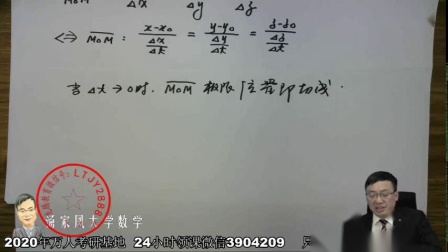 M₀M Δx Δy Δz
⟺ M₀M : (x-x₀)/(Δx/Δt) = (y-y₀)/(Δy/Δt) = (z-z₀)/(Δz/Δt)
当 Δt → 0时. M₀M 极限位置即切线.
LTJY2888
大学数学
2020年万人考研基地 24小时领课微信3904209